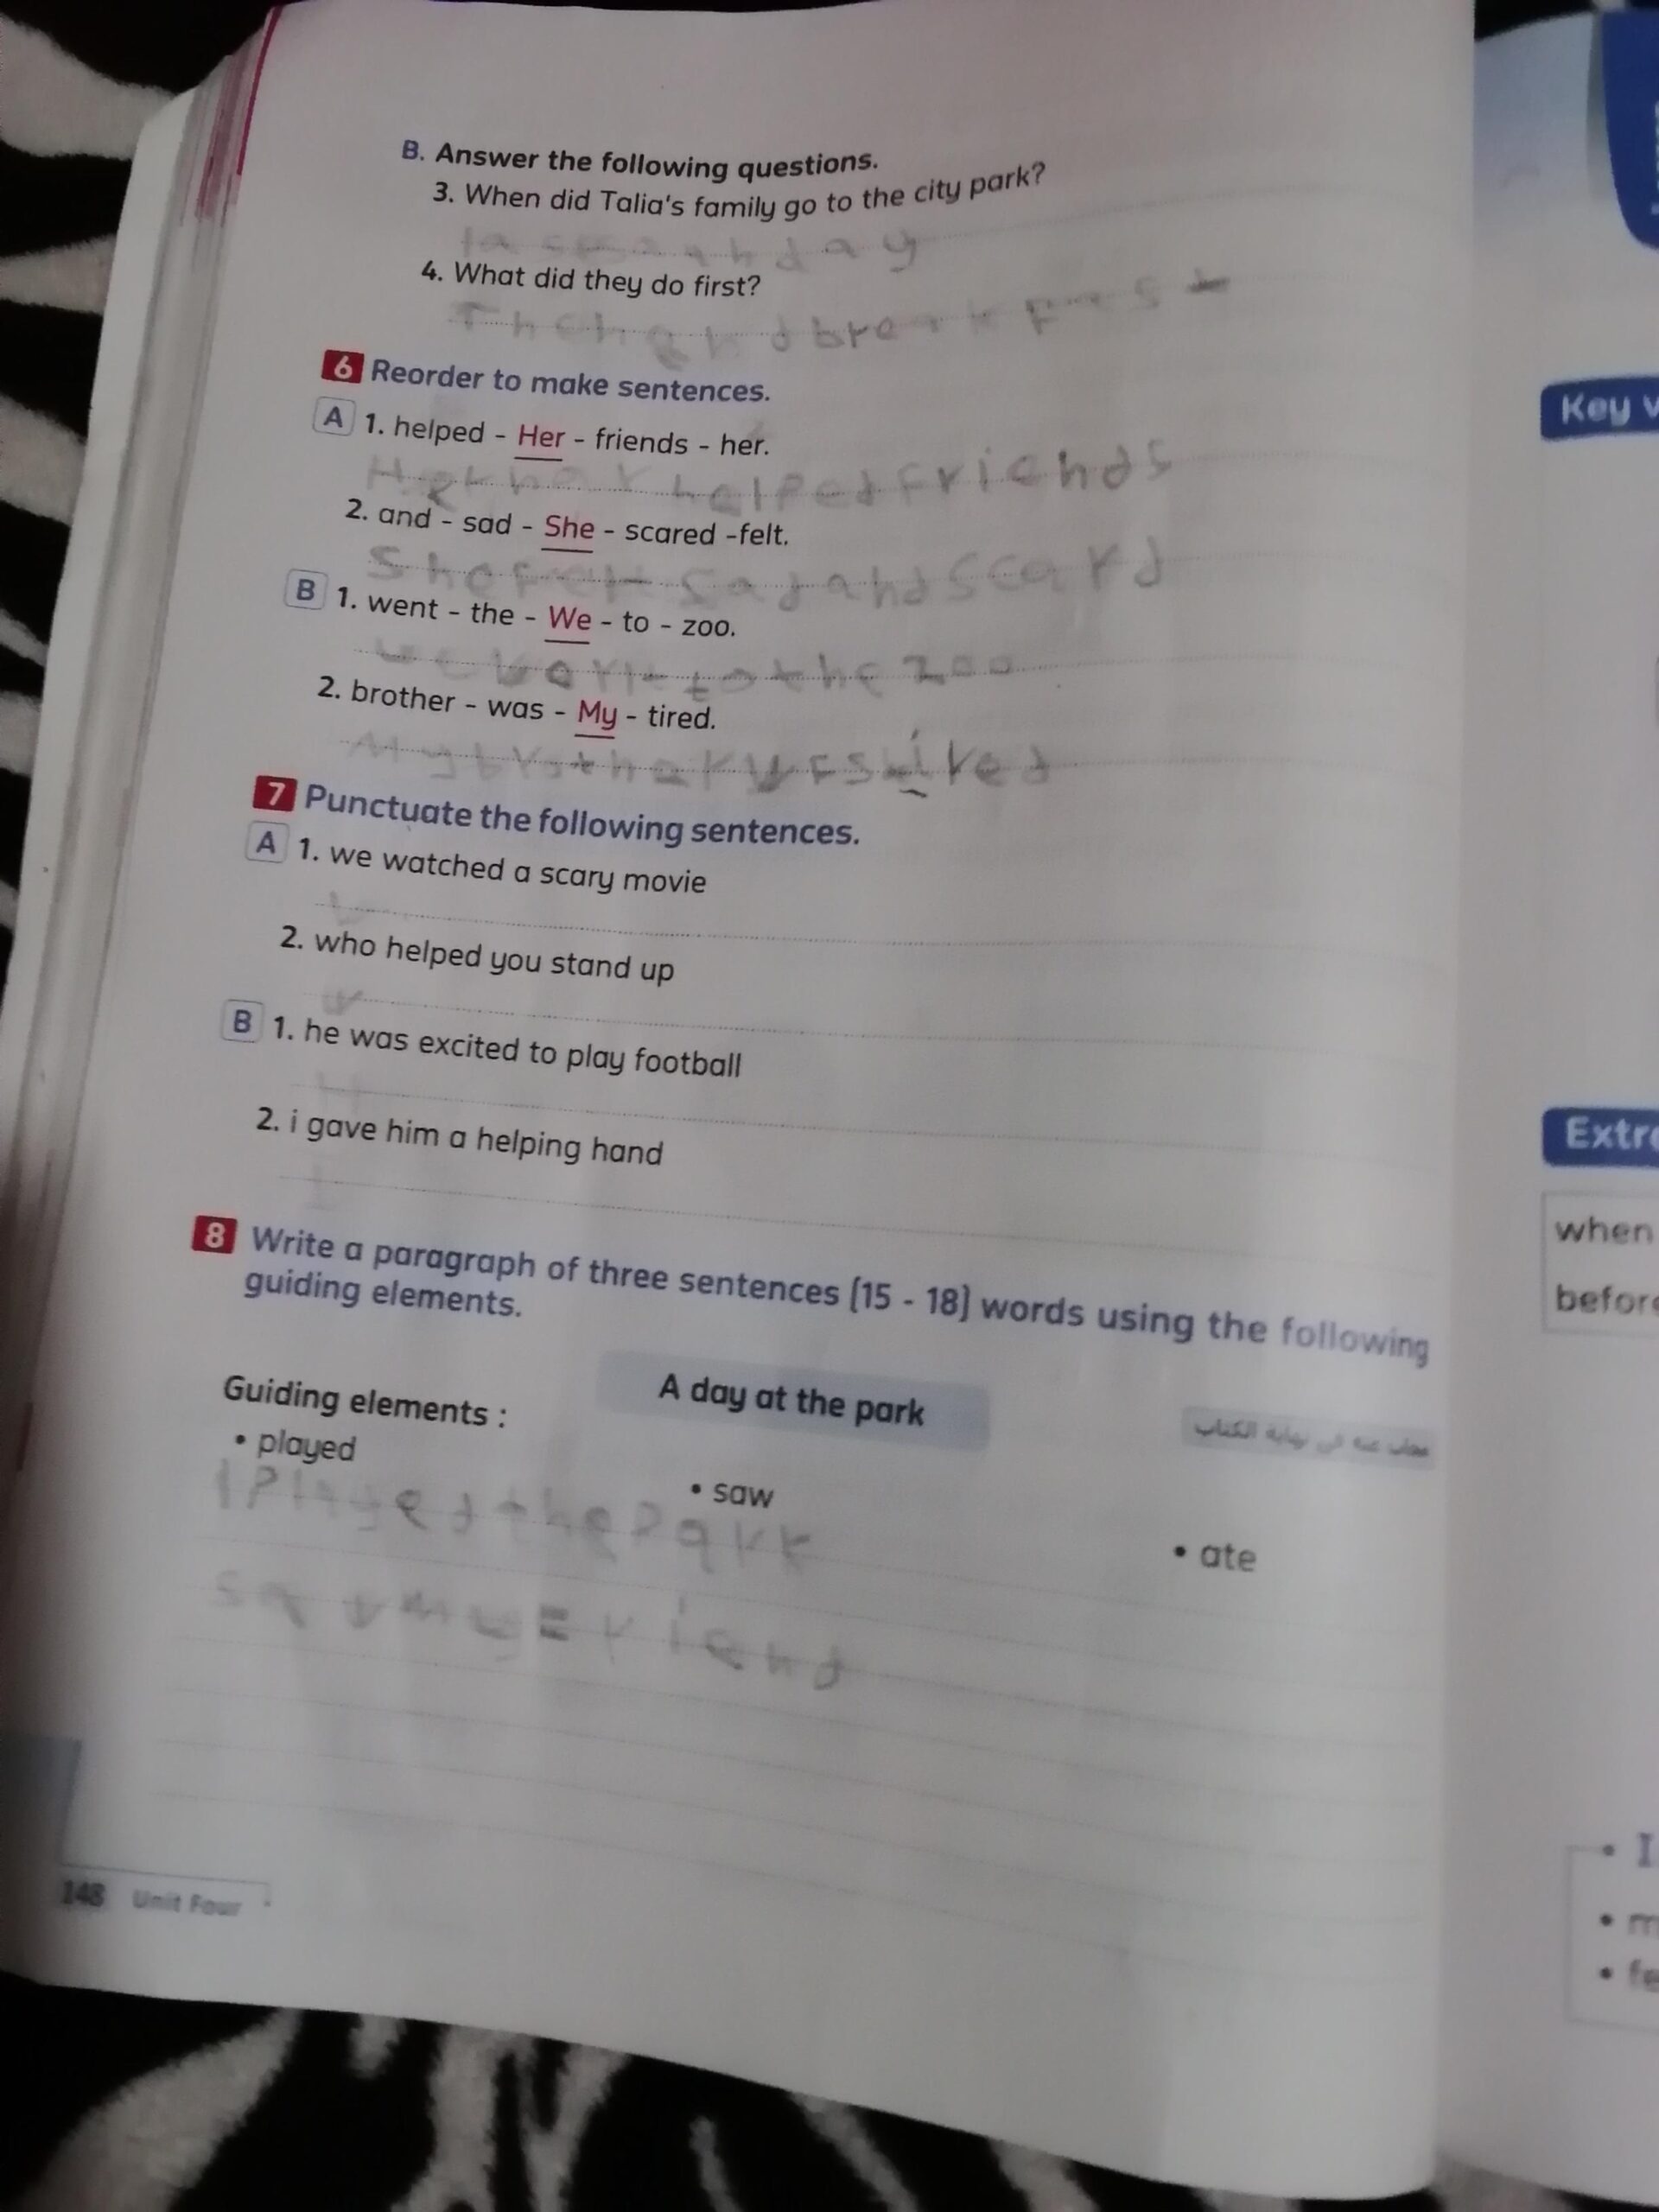 B. Answer the following questions.
3. When did Talia's family go to the city park?
day
4. What did they do first?
6 Reorder to make sentences.
A 1. helped - Her - friends - her.
helped friends
2. and - sad - She - scared -felt.
She sad and scard
B 1. went - the - We - to - zoo.
to the zoo
2. brother - was - My - tired.
My
7 Punctuate the following sentences.
A 1. we watched a scary movie
2. who helped you stand up
B 1. he was excited to play football
2. i gave him a helping hand
8 Write a paragraph of three sentences (15 - 18) words using the following
guiding elements.
A day at the park
مجاب عنه في نهاية الكتاب
Guiding elements :
• played
• saw
• ate
I played the park
my
148 Unit Four
Key
Extr
when
before
• I
• m
• fe